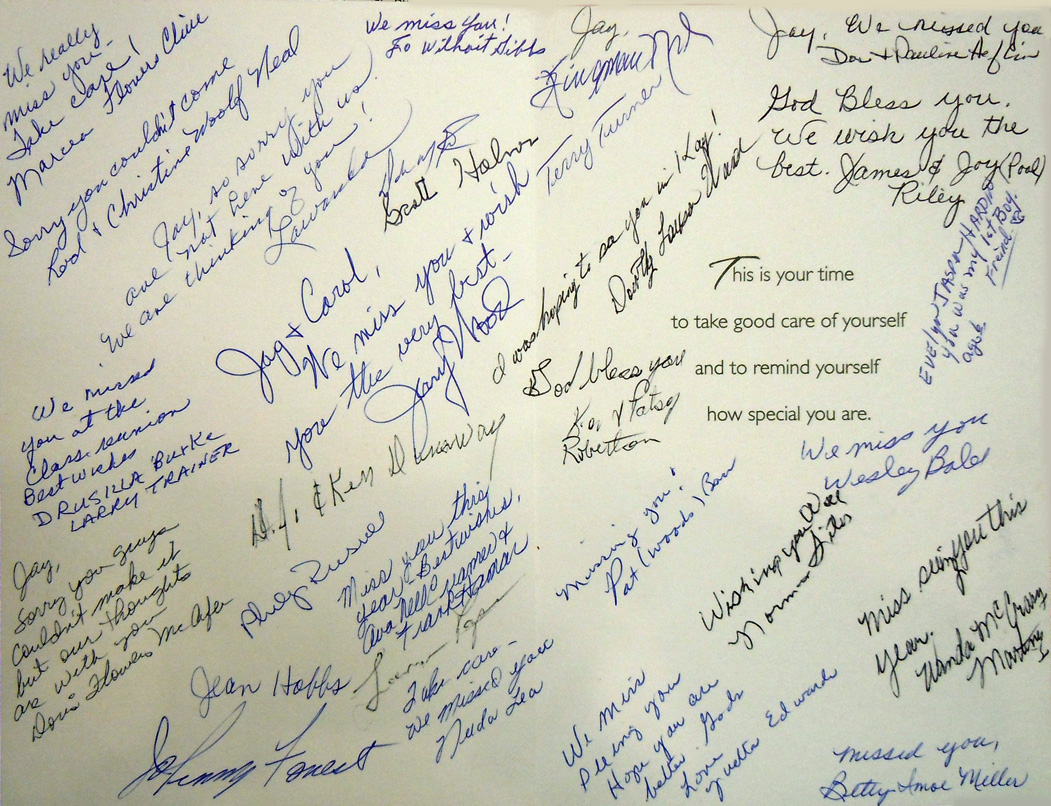 We really
miss you -
Take care!
Marcea Flowers Cline
We miss you!
Jo Without Gibbs
Jay,
Kingman
Terry Turner
Jay, We missed you
Don & Pauline Heflin
God Bless you.
We wish you the
best. James & Joy (Pool)
Riley
Sorry you couldn't come
Rod & Christine Woolf Neal
Jay, so sorry you
are not here with us!
We are thinking of you!
Lawanda
Scott Holmes
Jay & Carol,
We miss you & wish
you the very best-
Jerry Wood
I was hoping to see you in Kay!
Dorothy Lawson Ward
Evelyn
You was my 1st Boy
Friend.
This is your time
to take good care of yourself
and to remind yourself
how special you are.
God bless you
K.O. & Patsy
Robertson
We missed
you at the
Class reunion
Best wishes
DRUSILLA BURKE
LARRY TRAINER
& Ken Dunaway
We miss you
Wesley Bale
Missing you!
Pat (Woods)
Wishing you Well
Norman
Miss seeing you this
year.
Wanda McCrary
Martin
Jay,
Sorry you guys
couldn't make it
but our thoughts
are with you
Doris Flowers McAfee
Miss you this
year & Best wishes,
Ava Nelle
Frank Hamar
Jean Hobbs
Take care-
We missed you
Nuda Lea
Johnny Forest
We miss
seeing you
Hope you are
better Gods
Love
Edwards
Missed you,
Betty Miller